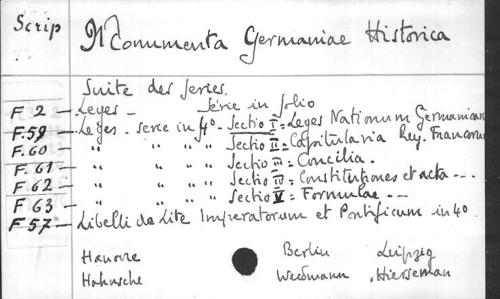 Scrip
Monumenta Germaniae Historica
Suite des series.
F 2 — Leges — Série in folio
F.59 — Leges - serie in f4° - Sectio I = Leges Nationum Germanicarum
F.60 — " " " " Sectio II = Capitularia Reg. Francorum
F. 61 — " " " " Sectio III = Concilia.
F 62 — " " " " Sectio IV = Constitutiones et acta - - -
F 63 — " " " " Sectio V = Formulae - -
F 57 — Libelli de Lite Imperatorum et Pontificum in 4°.
Hanovre Berlin Leipzig
Hahnsche Weidmann Hierseman